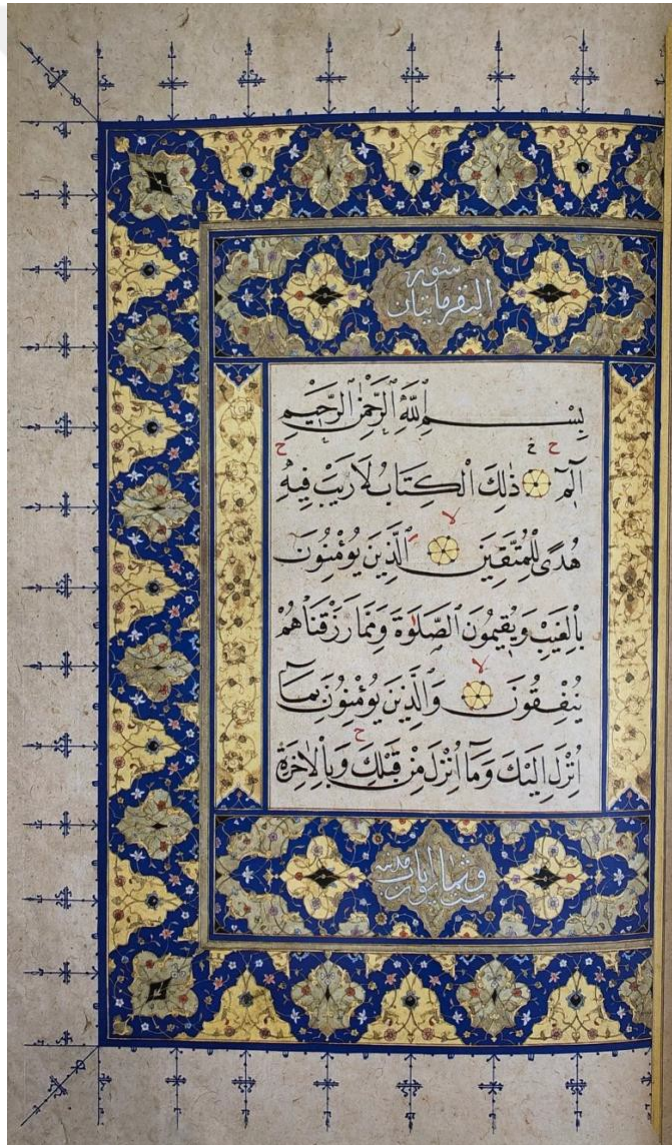 سورة
البقرة مایتان
بِسْمِ ٱللَّهِ ٱلرَّحْمٰنِ ٱلرَّحِيمِ
الٓمٓ ذٰلِكَ الْكِتَابُ لَا رَيْبَ فِيهِ
هُدًى لِلْمُتَّقِينَ ٱلَّذِينَ يُؤْمِنُونَ
بِالْغَيْبِ وَيُقِيمُونَ ٱلصَّلٰوةَ وَمِمَّا رَزَقْنَاهُمْ
يُنْفِقُونَ وَالَّذِينَ يُؤْمِنُونَ بِمَآ
اُنْزِلَ اِلَيْكَ وَمَآ اُنْزِلَ مِنْ قَبْلِكَ وَبِالْاٰخِرَةِ
وثمانون ايات مدنية